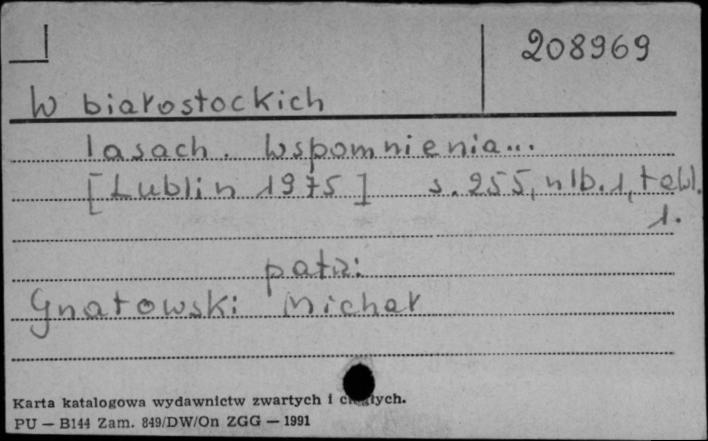 208969
W białostockich
lasach. Wspomnienia...
[Lublin 1975] s. 255, nlb. 1, tabl.
1.
patrz:
Gnatowski Michał
Karta katalogowa wydawnictw zwartych i ciągłych.
PU — B144 Zam. 849/DW/On ZGG — 1991